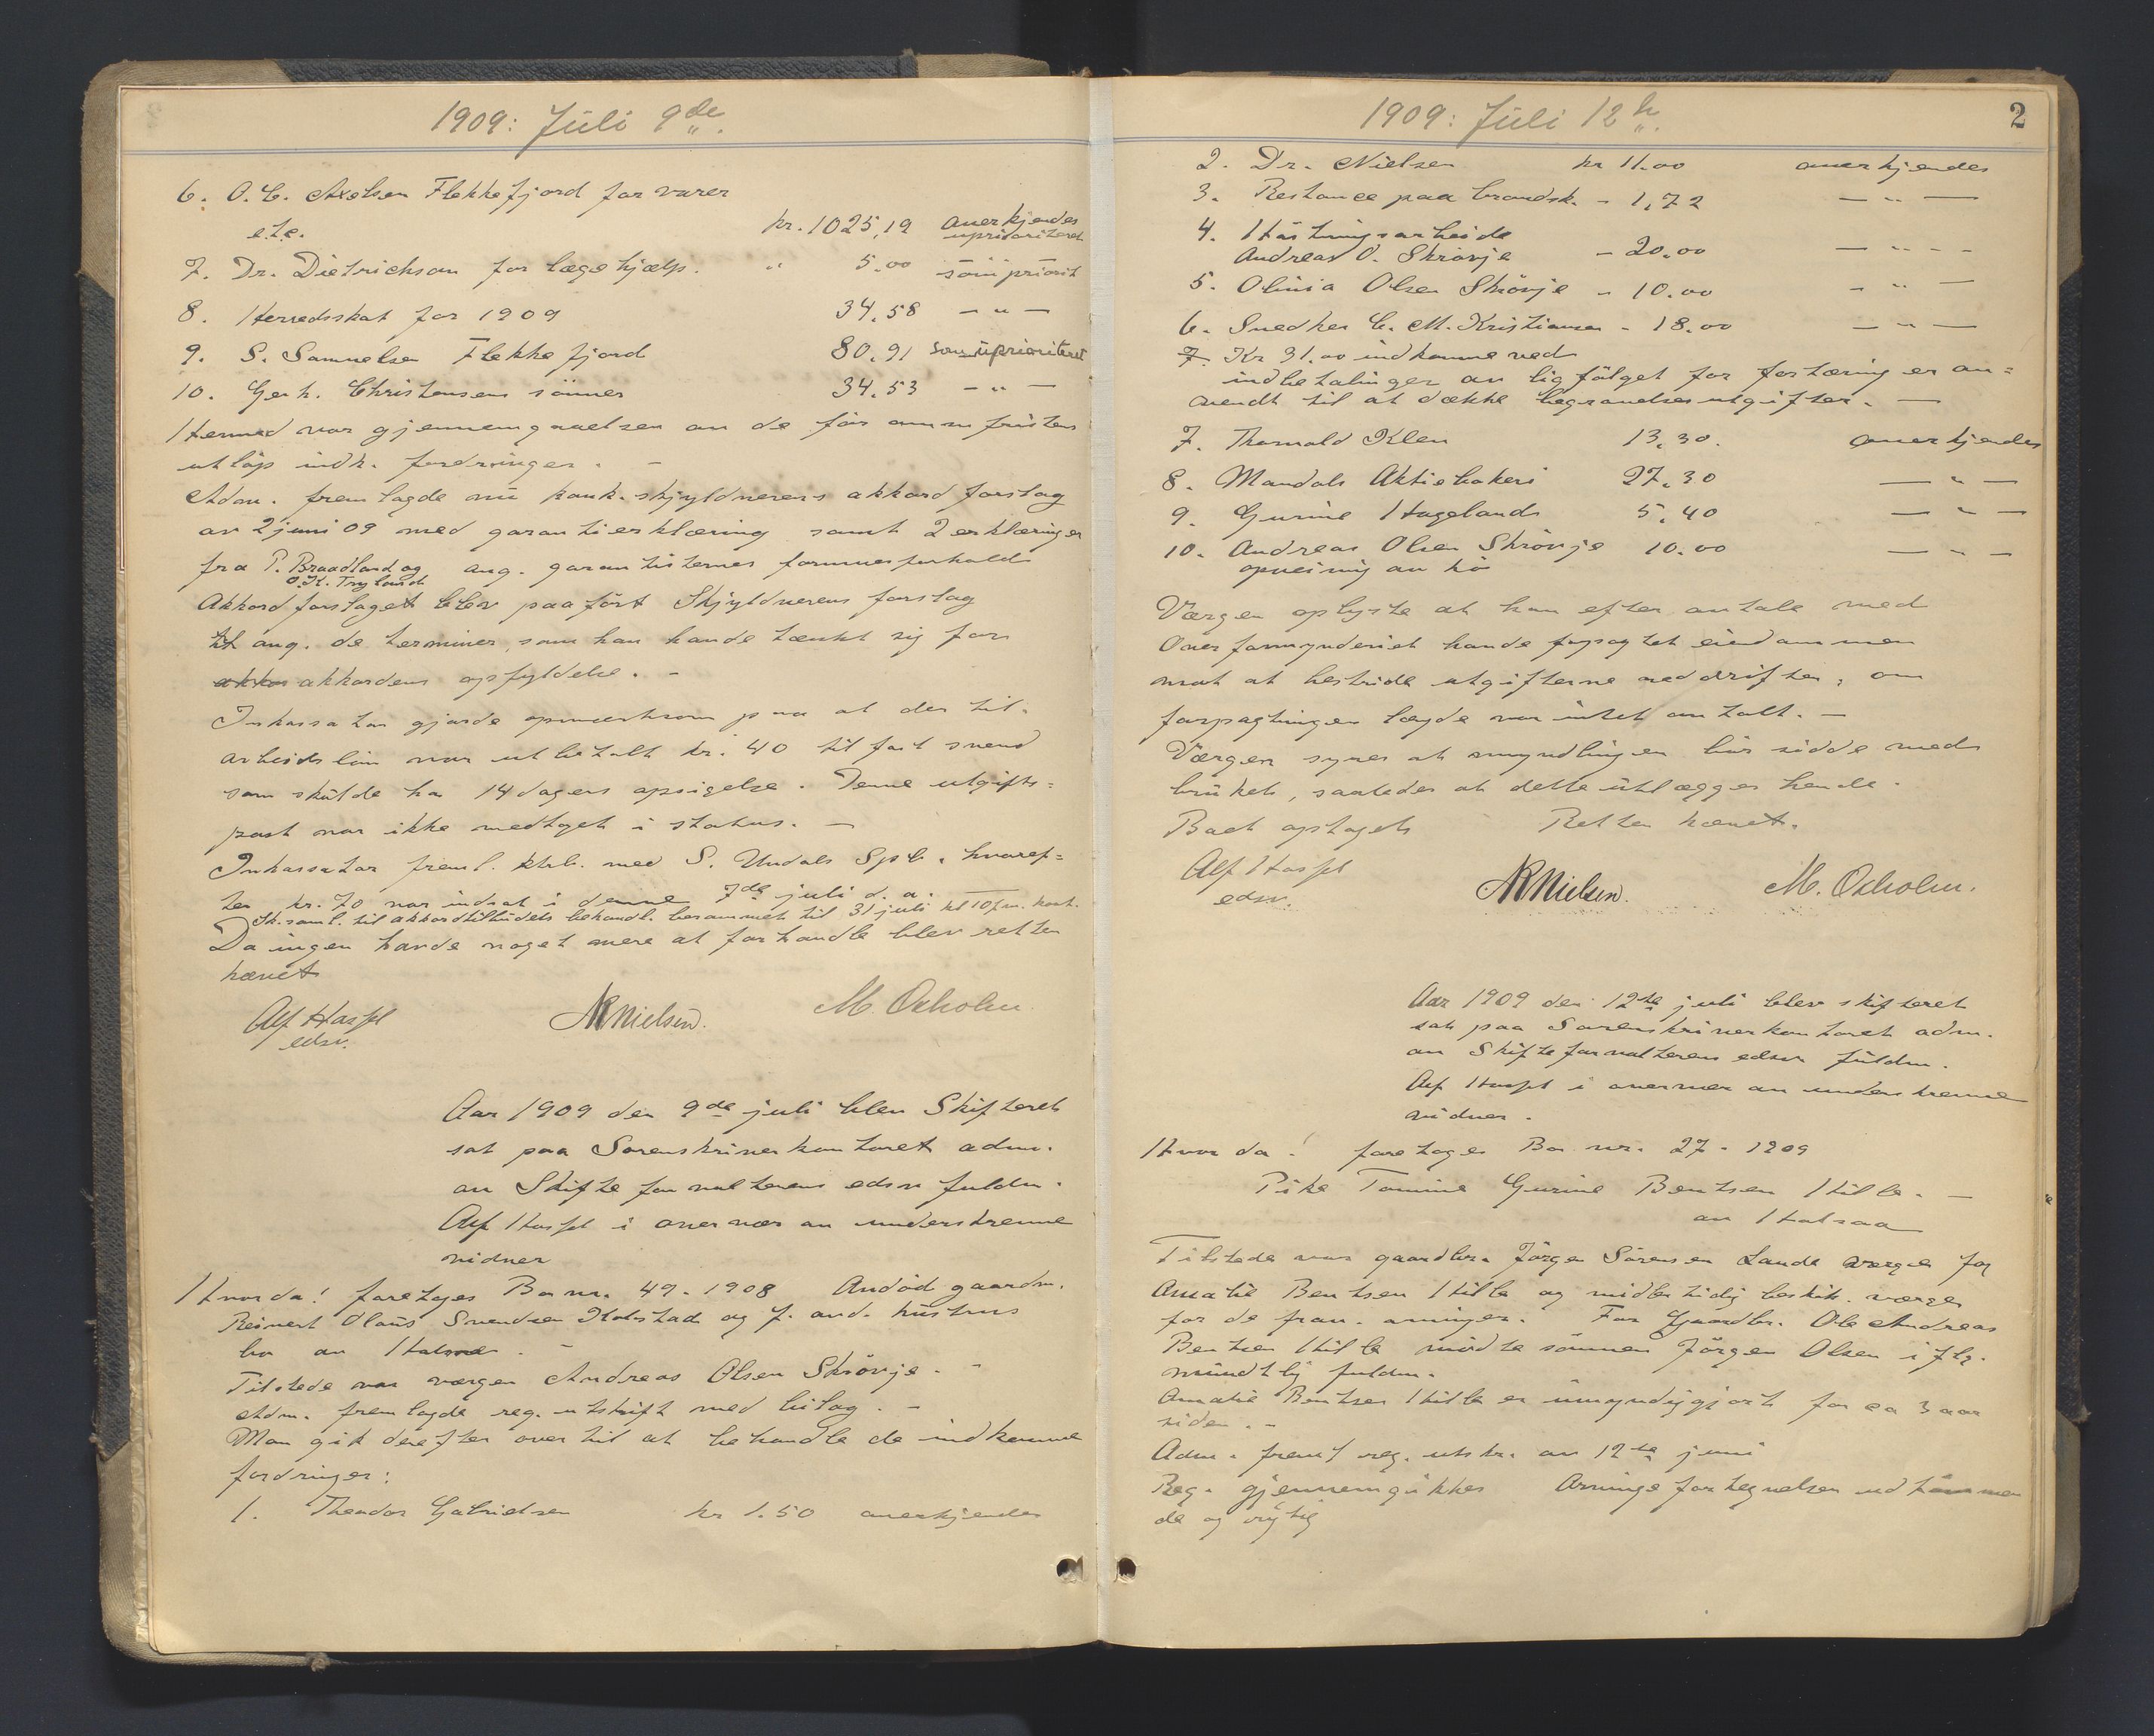 1909: Juli 9de.
6. O. C. Axelsen Flekkefjord for varer
etc. kr. 1025,19 anerkjendes
uprioriteret
7. Dr. Dietrichson for lægehjælp. " 5.00 som priorit
8. Herredsskat for 1909 34.58 — " —
9. S. Samuelsen Flekkefjord 80.91 som uprioriteret
10. Gerh. Christensens sönner 34.53 — " —
Hermed var gjennemgaaelsen av de för anm fristens
utlöp indk. fordringer. —
Adm. fremlagde nu konk. skyldnerens akkord forslag
av 2 juni 09 med garantierklæring samt 2 erklæringer
fra P. Braadland og ang. garantisternes formuesforhold
O. K. Trygland
Akkordforslaget blev paafört Skyldnerens forslag
ang. de terminer, som han havde tænkt sig for
akkordens opfyldelse. —
Inkassator gjorde opmerksom paa at der til
arbeidslön var utbetalt kr. 40 til fast svend
som skulde ha 14 dagers opsigelse. Denne utgifts=
post var ikke medtaget i status. —
Inkassator freml. ktrb. med S. Undals Spb. hvoref=
ter kr. 70 var indsat i denne 7de juli d. a.
Sk.saml. til akkordtilbudets behandl. berammet til 31 juli kl 10 fm. kont.
Da ingen havde noget mere at forhandle blev retten
hævet
Alf Hassel NRNielsen. M. Oxholm.
edsv.
Aar 1909 den 9de juli blev Skifteret
sat paa Sorenskriverkontoret adm.
av Skifteforvalterens edsv fuldm.
Alf Hassel i overvær av underskrevne
vidner
Hvorda! foretoges Bo nr. 49 - 1908 Andöd gaardm.
Reinert Olaus Svendsen Holstad og f. avd. hustrus
bo av Halsaa. —
Tilstede var værgen Andreas Olsen Skrövje. —
Adm. fremlagde reg. utskrift med bilag. —
Man gik derefter over til at behandle de indkomne
fordringer:
1. Theodor Gabrielsen kr 1.50 anerkjendes
1909: Juli 12te.
2
2. Dr. Nielsen kr 11.00 anerkjendes
3. Restance paa brandsk. - 1,72 — " —
4. Höstningsarbeide
Andreas O. Skrövje - 20.00 — " —
5. Olinia Olsen Skövje - 10.00 - " —
6. Snedker C. M. Kristiansen - 18.00 — " —
7. Kr 31.00 indkomne ved
indbetalinger av ligfölget for fortæring er an=
vendt til at dække begravelsesutgifter. —
7. Thorvald Klev 13,30. anerkjendes
8. Mandals Aktiebakeri 27.30 — " —
9. Gurine Hageland 5.40 — " —
10. Andreas Olsen Skrövje 10.00 — " —
opveining av hö
Værgen oplyste at han efter avtale med
Overformynderiet havde forpagtet eiendommen
mot at bestride utgifterne ved driften, om
forpagtningen længde var intet avtalt. —
Værgen synes at myndlingen bör sidde med
bruket, saaledes at dette utlægges hende.
Boet optaget Retten hævet.
Alf Hassel NRNielsen. M. Oxholm.
edsv.
Aar 1909 den 12te juli blev skifteret
sat paa Sorenskriverkontoret adm.
av Skifteforvalterens edsv fuldm.
Alf Hassel i overvær av underskrevne
vidner.
Hvor da! foretoges Bo nr. 27 - 1909
Pike Tomine Gurine Bentsen Hille. —
av Halsaa
Tilstede var gaardbr. Jörgen Sörensen Lande værge for
Amalie Bentsen Hille og midlertidig beskik. værge
for de frav. arvinger. For Gaardbr. Ole Andreas
Bentsen Hille mödte sönnen Jörgen Olsen i flg.
mundtlig fuldm.
Amalie Bentsen Hille er umyndiggjort for ca 3 aar
siden. —
Adm. freml reg. utskr. av 12te juni
Reg. gjennemgikkes Arvingefortegnelsen udtömmen
de og rigtig